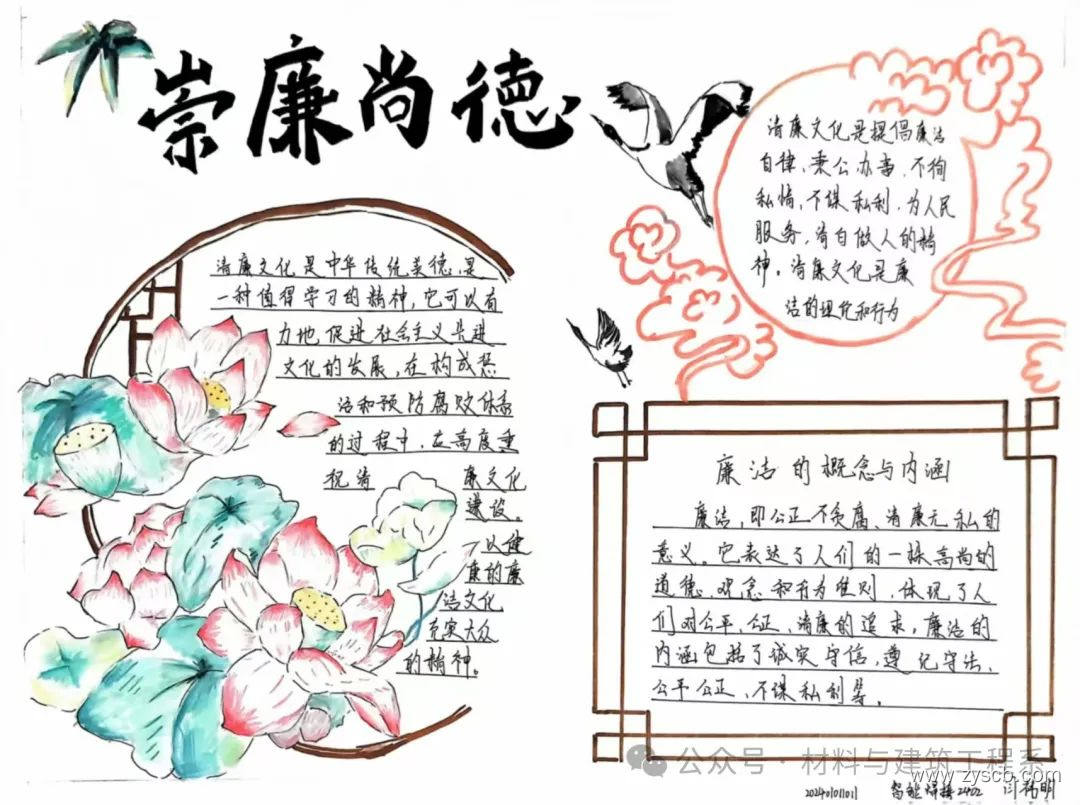 崇廉尚德
清廉文化是中华传统美德,是
一种值得学习的精神,它可以有
力地促进社会主义先进
文化的发展,在构成惩
治和预防腐败体系
的过程中,在高度重
视清 廉文化
建设。
以健
康的廉
洁文化
充实大众
的精神。
清廉文化是提倡廉洁
自律、秉公办事、不徇
私情,不谋私利,为人民
服务,清白做人的精
神。清廉文化是廉
洁的理化和行为
廉洁的概念与内涵
廉洁,即公正不贪腐、清廉无私的
意义。它表达了人们的一抹高尚的
道德、观念和行为准则,体现了人
们对公平、公正、清廉的追求,廉洁的
内涵包括了诚实守信,遵纪守法、
公平公正、不谋私利等。
公众号 · 材料与建筑工程系
www.zyscb.com
20240101101 智能焊接2402 闫
明